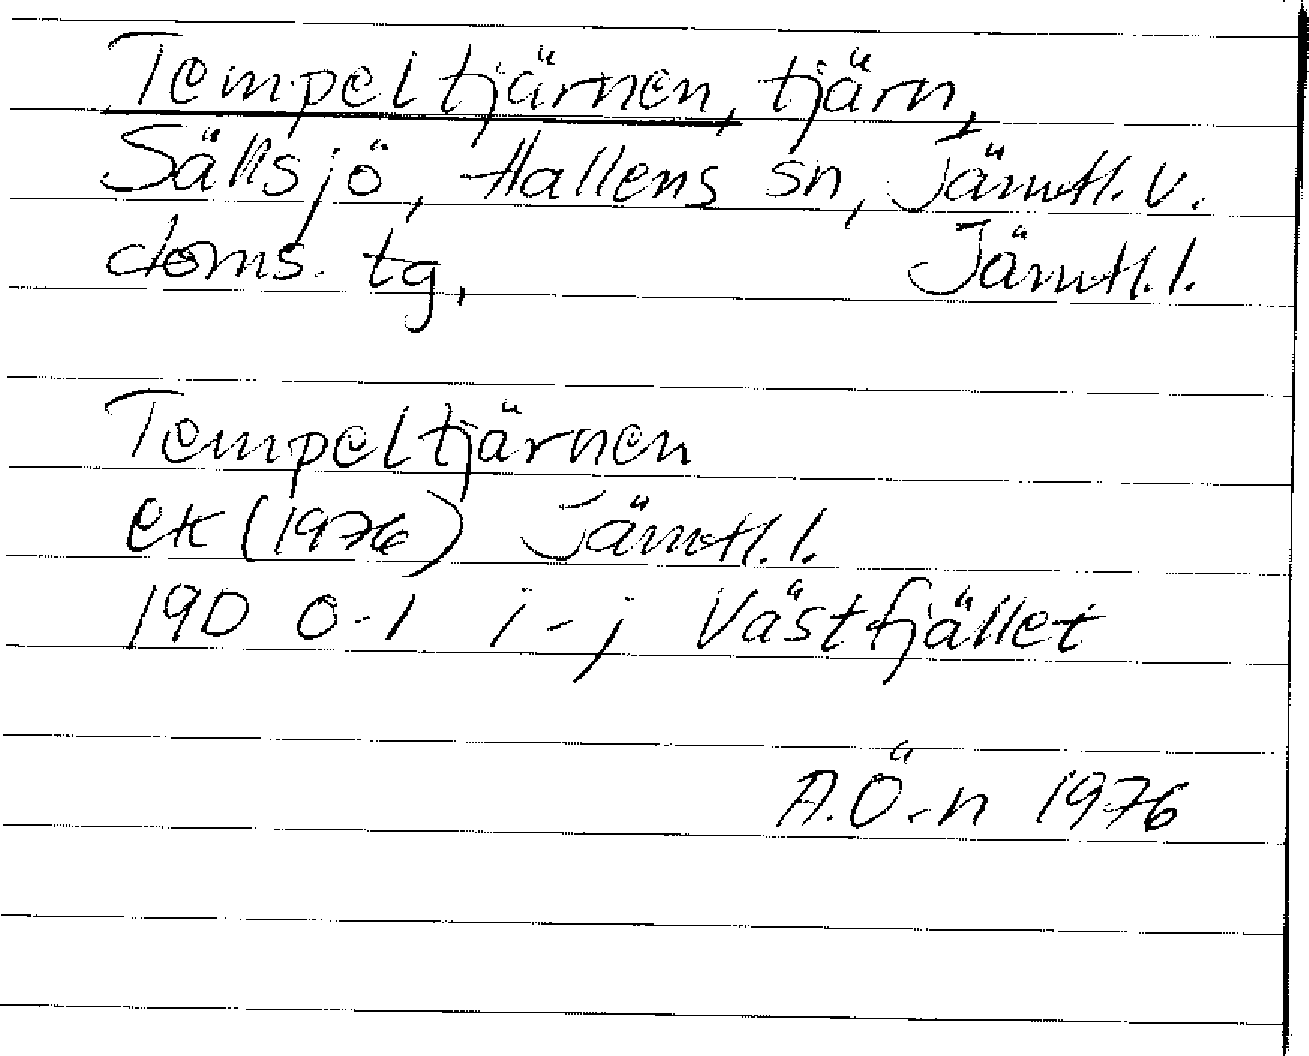 Tempeltjärnen, tjärn,
Sällsjö, Hallens sn, Jämtl. v.
doms. tg, Jämtl. l.
Tempeltjärnen
ek (1976) Jämtl. l.
19D 0-1 i-j Västfjället
A.Ö-n 1976